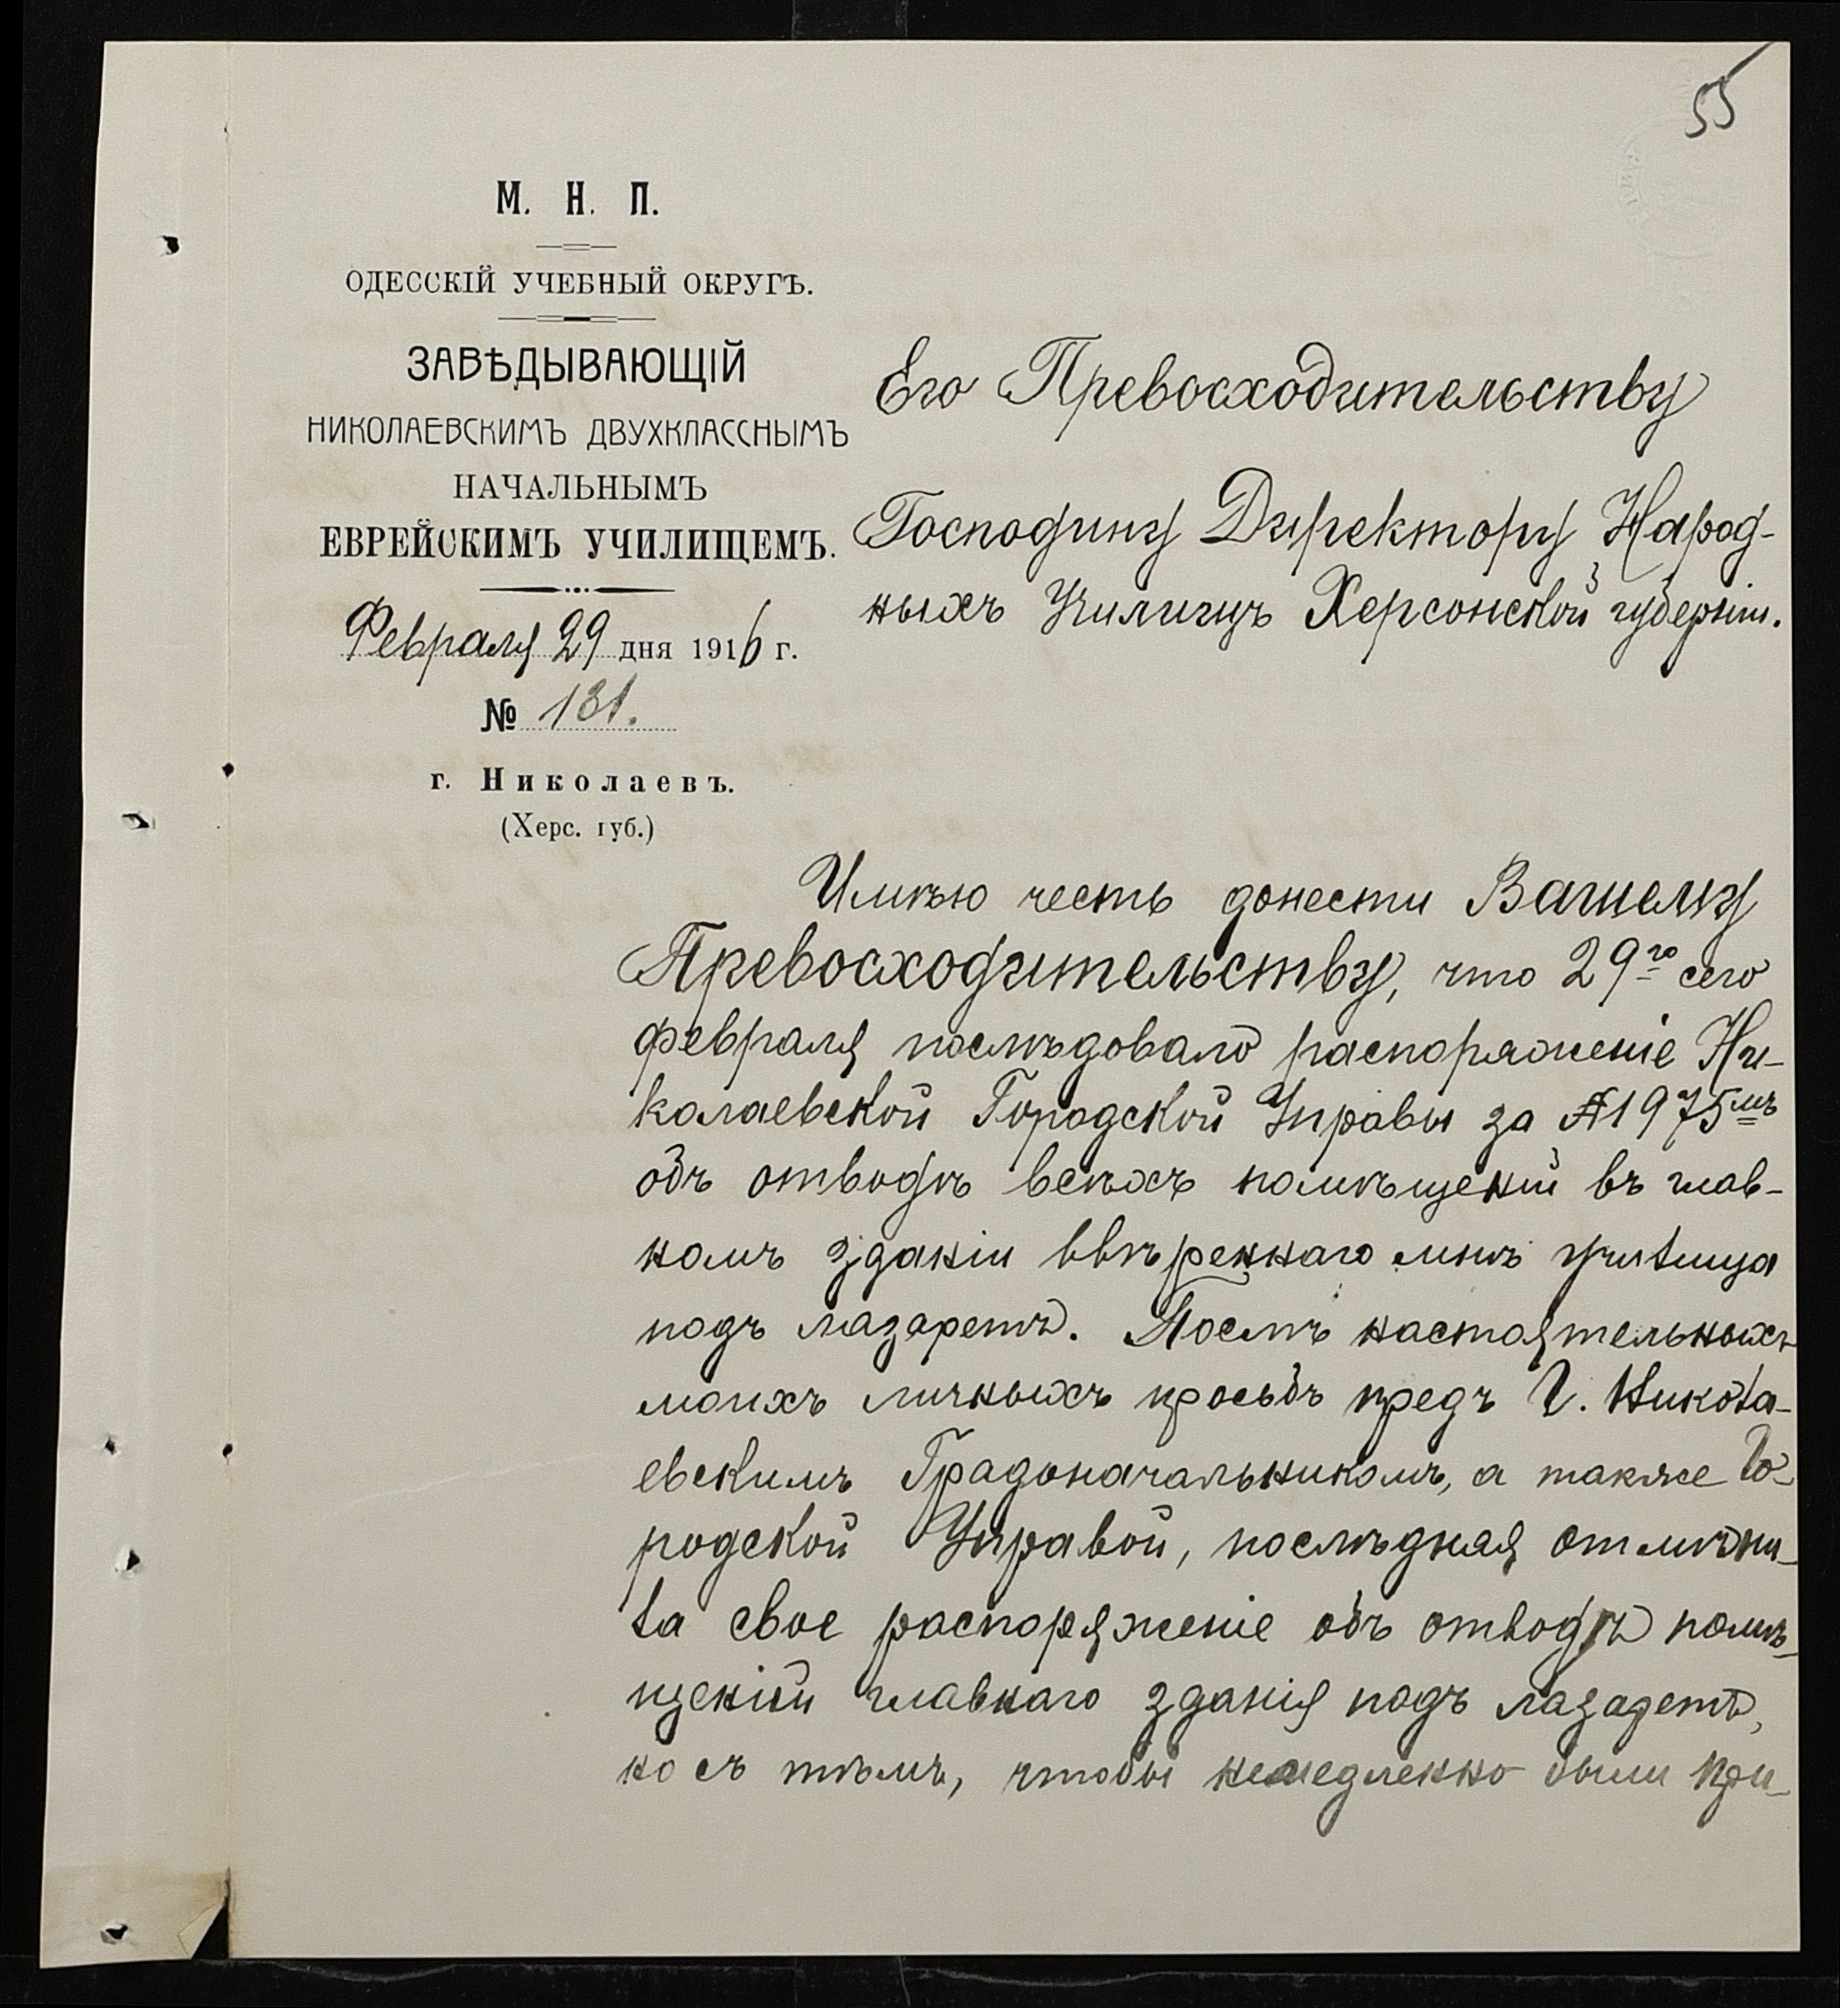 55
М. Н. П.
ОДЕССКІЙ УЧЕБНЫЙ ОКРУГЪ.
ЗАВѢДЫВАЮЩІЙ
НИКОЛАЕВСКИМЪ ДВУХКЛАССНЫМЪ
НАЧАЛЬНЫМЪ
ЕВРЕЙСКИМЪ УЧИЛИЩЕМЪ.
Февраля 29 дня 1916 г.
№ 131.
г. Николаевъ.
(Херс. губ.)
Его Превосходительству
Господину Директору Народ-
ныхъ Училищъ Херсонской губерніи.
Имѣю честь донести Вашему
Превосходительству, что 29го сего
февраля послѣдовало распоряженіе Ни-
колаевской Городской Управы за №1975мъ
объ отводѣ всѣхъ помѣщеній въ глав-
номъ зданіи ввѣреннаго мнѣ училища
подъ лазаретъ. Послѣ настоятельныхъ
моихъ личныхъ просьбъ предъ Г. Никола-
евскимъ Градоначальникомъ, а также Го-
родской Управой, послѣдняя отмѣни-
ла свое распоряженіе объ отводѣ помѣ-
щеній главнаго зданія подъ лазаретъ,
но съ тѣмъ, чтобы немедленно были при-